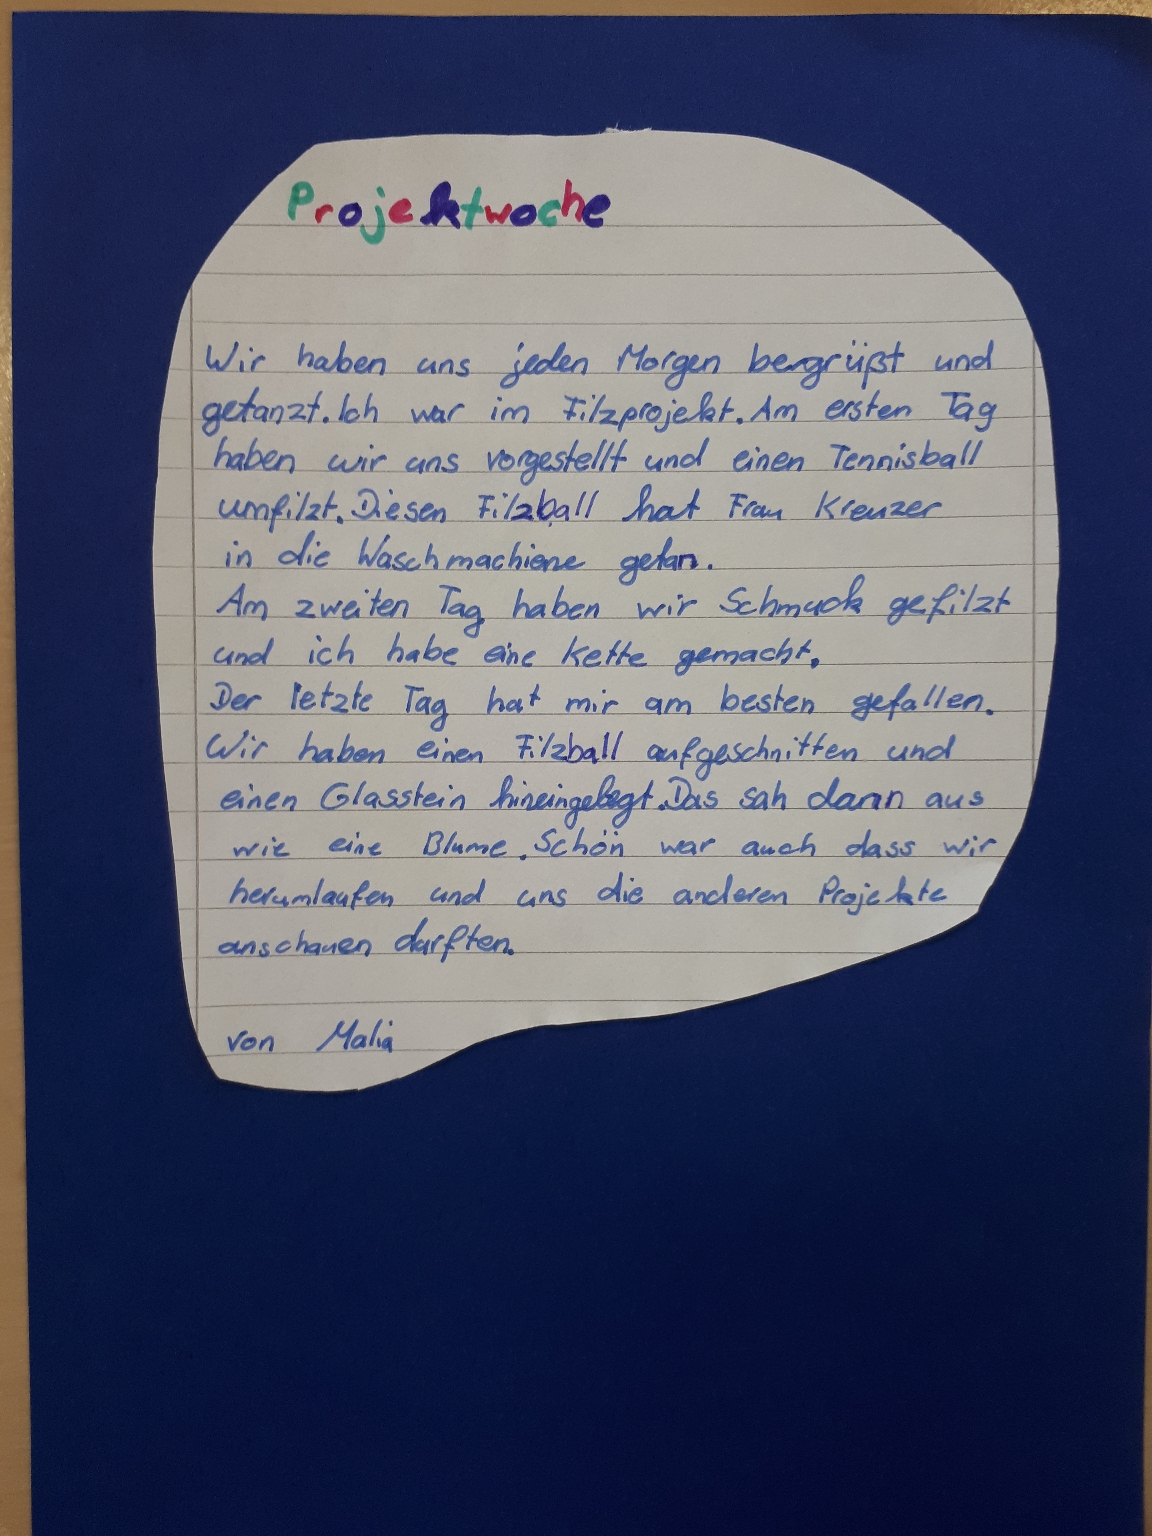 Projektwoche
Wir haben uns jeden Morgen bergrüßt und
getanzt. Ich war im Filzprojekt. Am ersten Tag
haben wir uns vorgestellt und einen Tennisball
umfilzt. Diesen Filzball hat Frau Kreuzer
in die Waschmachiene getan.
Am zweiten Tag haben wir Schmuck gefilzt
und ich habe eine Kette gemacht.
Der letzte Tag hat mir am besten gefallen.
Wir haben einen Filzball aufgeschnitten und
einen Glasstein hineingelegt. Das sah dann aus
wie eine Blume. Schön war auch dass wir
herumlaufen und uns die anderen Projekte
anschauen darften.
von Malia